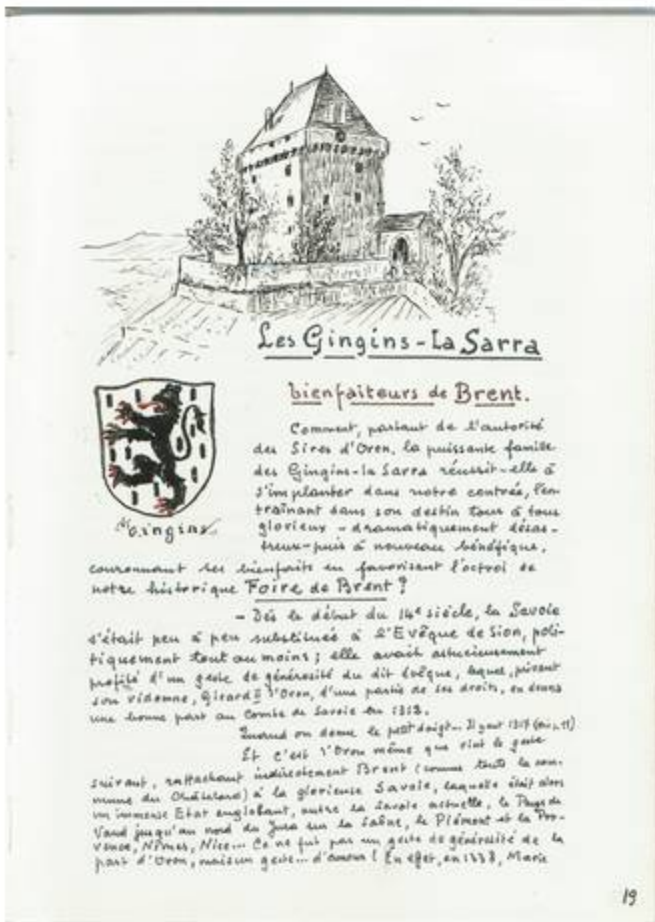 Les Gingins - La Sarra
bienfaiteurs de Brent.
Comment, partant de l'autorité
des Sires d'Oron, la puissante famille
des Gingins-la Sarra réussit-elle à
s'implanter dans notre contrée, l'en-
traînant dans son destin tour à tour
glorieux - dramatiquement désas-
treux - puis à nouveau bénéfique,
Gingins
couronnant ses bienfaits en favorisant l'octroi de
notre historique Foire de Brent ?
- Dès le début du 14e siècle, la Savoie
s'était peu à peu substituée à l'Evêque de Sion, poli-
tiquement tout au moins ; elle avait astucieusement
profité d'un geste de générosité du dit évêque, lequel, privant
son vidomne, Girard II d'Oron, d'une partie de ses droits, en
une bonne part au Comte de Savoie en
Quand on donne le petit doigt...
Et c'est d'Oron même que vint le geste
suivant, rattachant indirectement Brent (comme toute la com-
mune du Châtelard) à la glorieuse Savoie, laquelle était alors
un immense Etat englobant, outre la Savoie actuelle, le Pays de
Vaud jusqu'au nord du Jura sur la Saône, le Piémont et la Pro-
vence, Nîmes, Nice... Ce ne fut pas un geste de générosité de la
part d'Oron, mais un geste... d'amour ! En effet, en 1338, Marie
19